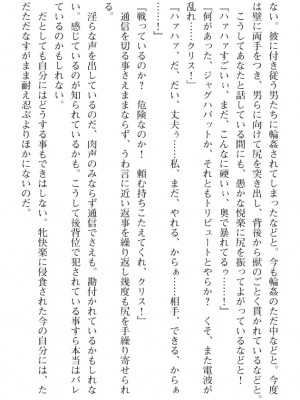 ない。彼に付き従う男たちに輪姦されてしまったなどと。今も輪姦のただ中などと。今度
は壁に両手をつき、男らに向けて尻を突き出し、背後から獣のごとく貫かれているなどと。
こうしてあなたと話している間にも、愚かな悦楽に尻を振ってよがっているなどと！
『ハァハァすごいぃ、まだ、こんなに硬いぃ、奥で暴れてるぅ……！』
『何があった、ジャグハバットか、それともトリビュートとやらか？　くそ、また電波が
乱れ……クリス！』
『ハァハァ、だ、だい、丈夫ぅ……私、まだ、やれる、からぁ……相手、できる、からぁ
……！』
『戦っているのか？　危険なのか！　頼む持ちこたえてくれ、クリス！』
通信を切る事さえままならず、うわ言に近い返事を繰り返し幾度も尻を手繰り寄せられ
淫らな声を出しているのだ、肉声のみならず通信でさえも。勘付かれているかもしれな
い。感じているのが知られているかも。こうして後背位で犯されている事すら本当はバレ
ているのかもしれない。
だとしても自分にはどうする事もできはしない。牝快楽に侵食された今の自分には、た
だただなすがまま耐え忍ぶよりほかにないのだ。